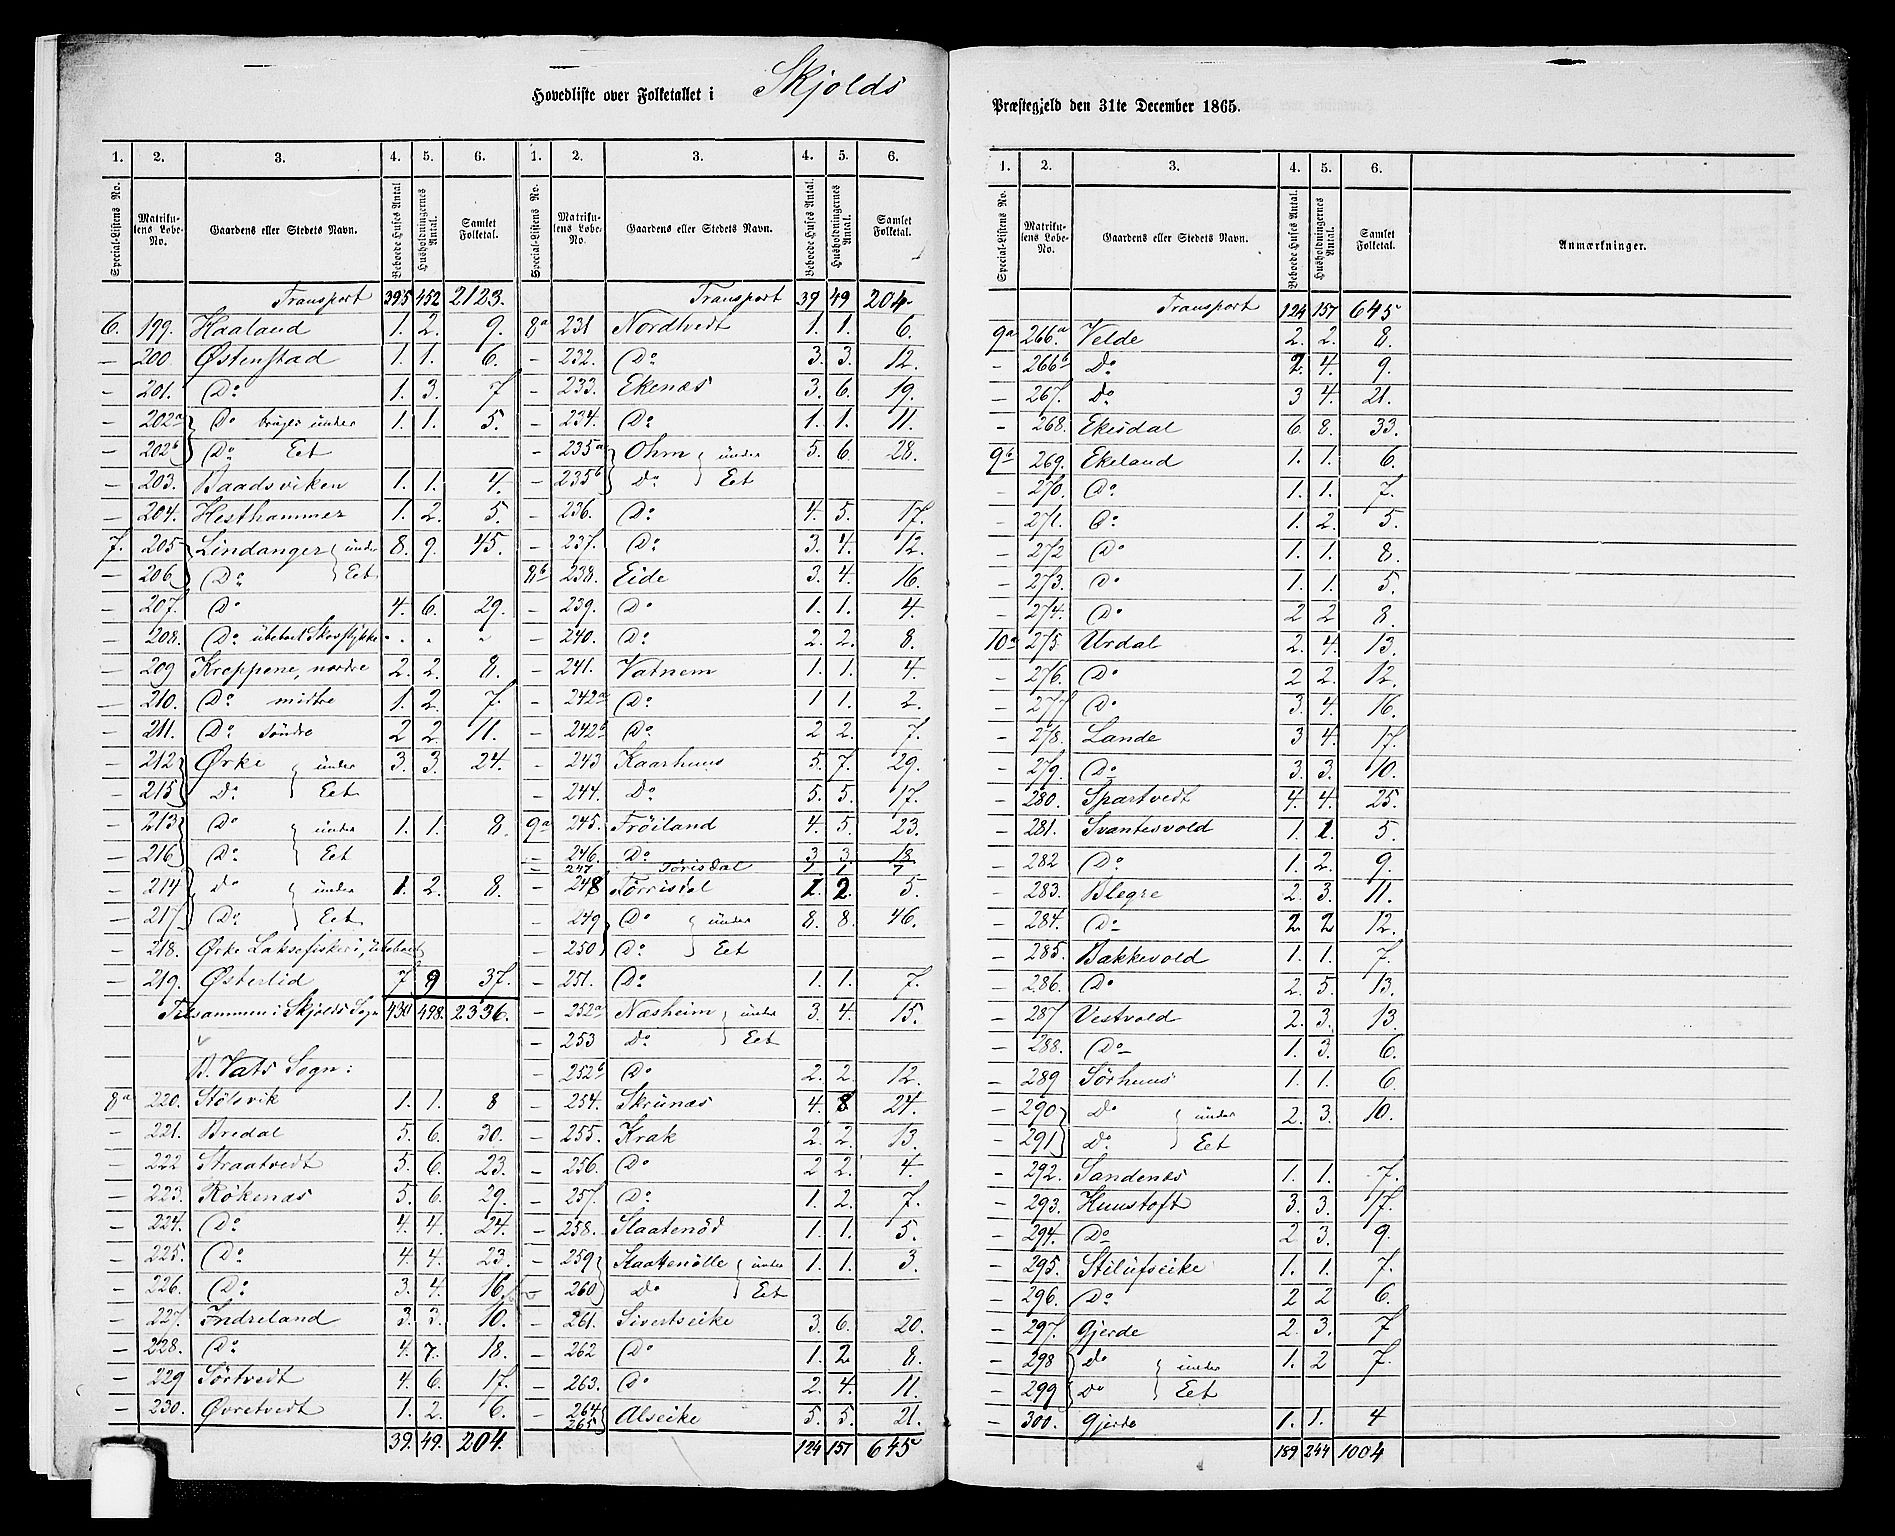 Hovedliste over Folketallet i Skjolds
Præstegjeld den 31te December 1865.
1. 2. 3. 4. 5. 6.
Special-Listens No. Matrikulens Løbe-No. Gaardens eller Stedets Navn. Beboede Huses Antal. Husholdningernes Antal. Samlet Folketal.
Transport 395 452 2123.
6. 199. Haaland 1. 2. 9.
— 200. Østenstad 1. 1. 6.
— 201. Do 1. 3. 7
— 202a Do bruges under 1. 1. 5.
— 202b Do Eet
— 203. Baadsviken 1. 1. 4.
— 204. Hesthammer 1. 2. 5.
7. 205 Lindanger under 8. 9. 45.
— 206 Do Eet
— 207. Do 4. 6. 29.
— 208. Do ubeboet Skovstykke " " "
— 209 Kroppene, nordre 2. 2. 8.
— 210. Do midtre 1. 2. 7.
— 211. Do Søndre 2 2. 11.
— 212 Ørke under 3. 3. 24.
— 215 Do Eet
— 213 Do under 1. 1. 8.
— 216 Do Eet
— 214 Do under 1. 2. 8.
— 217. Do Eet
— 218. Ørke Laksefiskeri, ubeboet
— 219. Østerlid 7 9 37.
Tilsammen i Skjolds Sogn 430 498. 2336.
B. Vats Sogn:
8a 220. Stølsvik 1. 1. 8
— 221. Bredal 5. 6. 30.
— 222 Straatvedt 5. 6. 23.
— 223. Røkenæs 5. 6. 29.
— 224. Do 4. 4. 24.
— 225. Do 4. 4. 23.
— 226. Do 3. 4. 16
— 227. Indreland 3. 3. 10.
— 228. Do 4. 7. 18.
— 229 Sørtvedt 4. 6. 17.
— 230. Øvretvedt 1. 2. 6.
39. 49. 204.
1. 2. 3. 4. 5. 6.
Special-Listens No. Matrikulens Løbe-No. Gaardens eller Stedets Navn. Beboede Huses Antal. Husholdningernes Antal. Samlet Folketal.
Transport 39 49 204
8a 231 Nordtvedt 1. 1. 6.
— 232. Do 3. 3. 12.
— 233. Ekenæs 3. 6. 19.
— 234. Do 1. 1. 11.
— 235a Ohm under 5. 6. 28.
— 235b Do Eet
— 236. Do 4. 5. 17.
— 237. Do 3. 4. 12.
8b 238. Eide 3. 4. 16.
— 239. Do 1. 1. 4.
— 240. Do 2. 2. 8.
— 241. Vatnem 1. 1. 4.
— 242a Do 1. 1. 2.
— 242b Do 2 2. 7.
— 243 Kaarhuus 5. 7. 29.
— 244. Do 5. 5. 17.
9a 245. Frøiland 4. 5. 23.
— 246. Do 3 3. 18
— 247 Torisdal 1 1 7
— 248 Torrisdal 1. 2. 5.
— 249 Do under 8. 8. 46.
— 250 Do Eet
— 251. Do 1. 1. 7.
— 252a Næsheim under 3. 4. 15.
— 253 Do Eet
— 252b Do 2. 2. 12.
— 254. Skrunæs 4. 8. 24.
— 255. Krak 2. 2. 13.
— 256. Do 2 2. 4.
— 257. Do 1. 2. 7.
— 258. Slaatenød 1. 1. 5.
— 259 under 1. 1. 3.
260 Do Eet
— 261. Sivertseike 3. 6. 20.
— 262 Do 1. 2. 8.
— 263. Do 2. 4. 11.
— 264 265 Alseike 5. 5. 21.
124 157 645
1. 2. 3. 4. 5. 6.
Special-Listens No. Matrikulens Løbe-No. Gaardens eller Stedets Navn. Beboede Huses Antal. Husholdningernes Antal. Samlet Folketal. Anmærkninger.
Transport 124 157 645
9a 266a Velde 2. 2. 8.
— 266b Do 2. 4. 9.
— 267. Do 3 4. 21.
— 268. Ekesdal 6. 8. 33.
9b 269. Ekeland 1. 1. 6.
— 270. Do 1. 1. 7.
— 271. Do 1. 2. 5.
— 272 Do 1. 1. 8.
— 273. Do 1. 1. 5.
— 274. Do 2 2 8.
10a 275 Urdal 2. 4. 13.
— 276. Do 2 2. 12.
— 277 Do 3. 4. 16.
— 278. Lande 3 4. 17.
— 279. Do 3. 3. 10.
— 280. Spartvedt 4. 4. 25.
— 281. Svantesvold 1. 1. 5.
— 282 Do 1. 2. 9.
— 283. Blegre 2. 3. 11.
— 284. Do 2 2 12.
— 285. Bakkevold 1. 1. 7.
— 286. Do 2. 5. 13.
— 287 Vestvold 2. 3. 13.
— 288. Do 1. 3. 6.
— 289 Sørhuus 1. 1. 6.
— 290 Do under 2. 3. 10.
— 291 Do Eet
— 292. Sandenæs 1. 1. 7.
— 293. Huustoft 3. 3. 17.
— 294. Do 2 3. 9.
— 295. Stilufseike 1. 1. 7.
— 296. Do 2 2 6.
— 297. Gjerde 2. 3. 7
— 298 Do under 1. 2 7.
— 299 Do Eet
— 300. Gjerde 1. 1. 4
189 244 1004